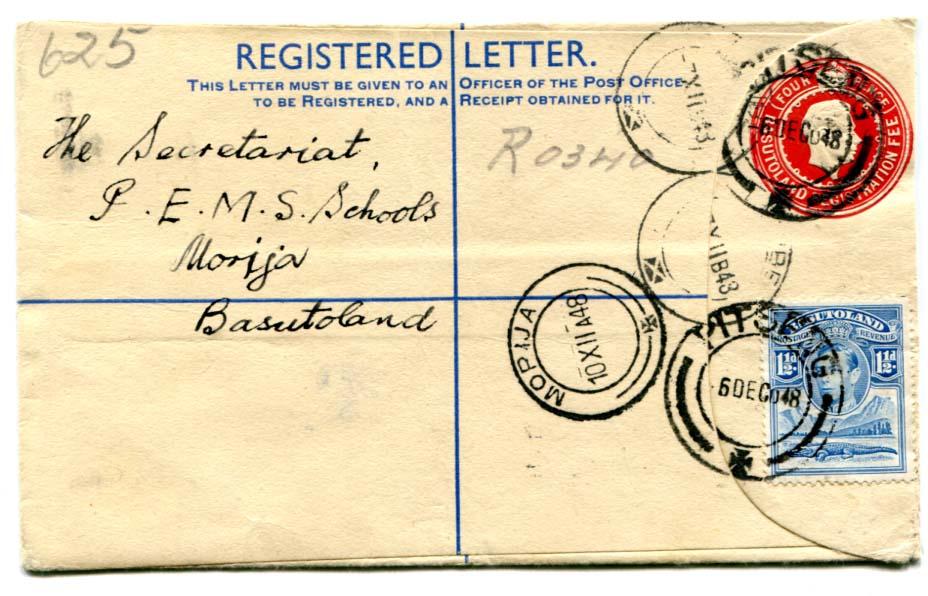 625
REGISTERED LETTER.
THIS LETTER MUST BE GIVEN TO AN OFFICER OF THE POST OFFICE
TO BE REGISTERED, AND A RECEIPT OBTAINED FOR IT.
The Secretariat,
P.E.M.S. Schools
Morija
Basutoland
R 0340
(FOUR PENCE)
BASUTOLAND REGISTRATION FEE
6 DEC 48
XII B 43
XII B 43
MORIJA
10 XII A 48
PITSENG
6 DEC 48
BASUTOLAND
POSTAGE REVENUE
1½d. 1½d.